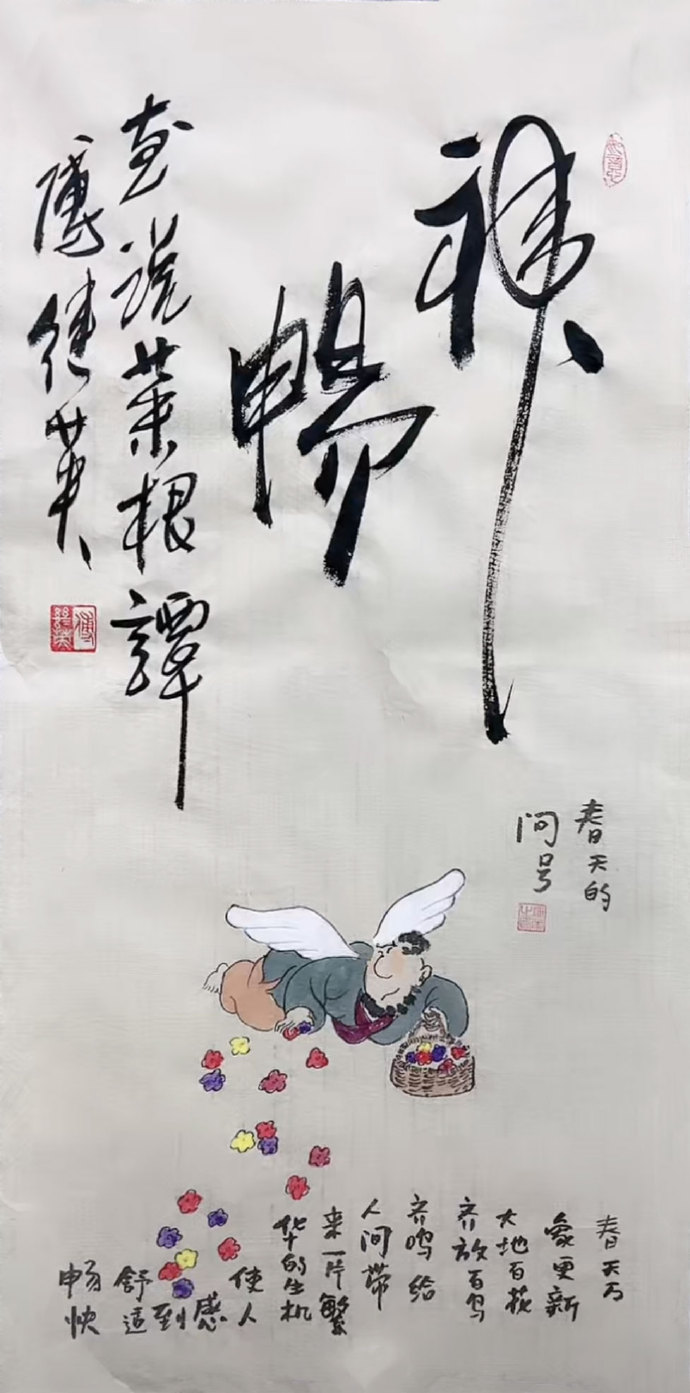 神暢
画说菜根譚
傅继英
春天的
问号
春天万
象更新
大地百花
齐放百鸟
齐鸣给
人间带
来一片繁
华的生机
使人
感到
舒适
畅快